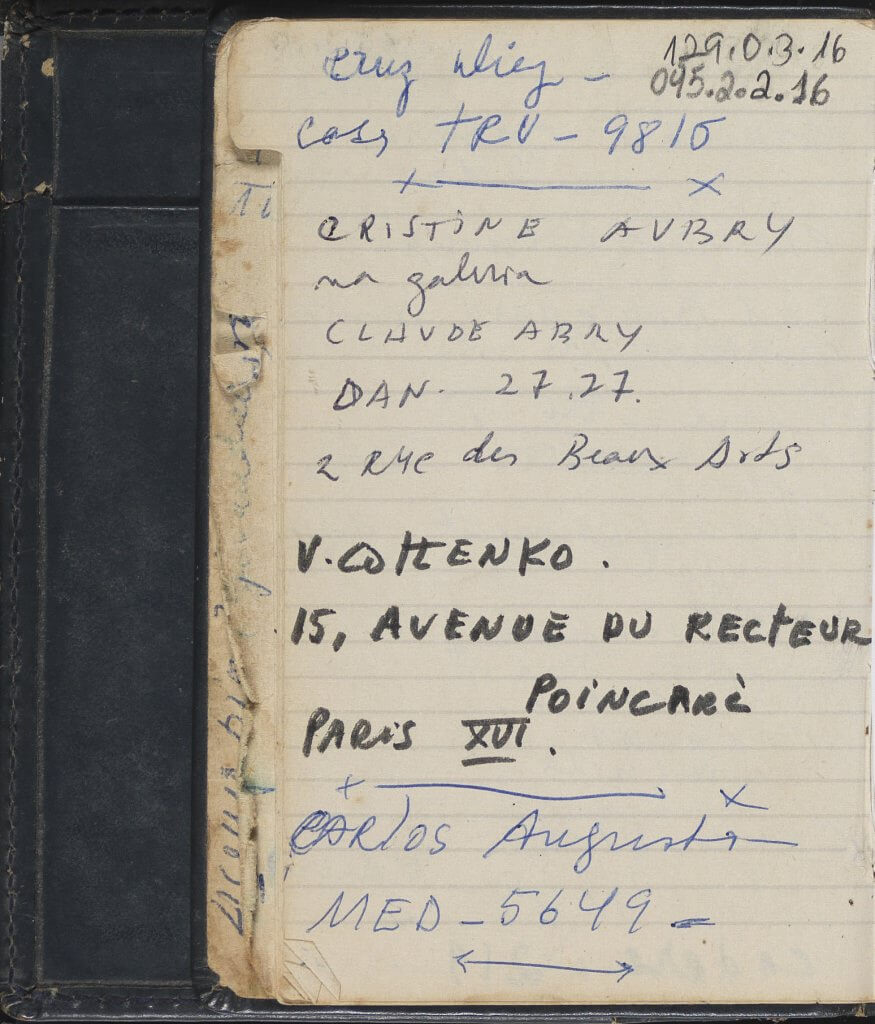 129.0.3.16
095.2.2.16
Cruz Diez –
Casa TRU – 9815
CRISTINE AUBRY
na galeria
CLAUDE ABRY
DAN. 27.27.
2 Rue des Beaux Arts
V. COTTENKO.
15, AVENUE DU RECTEUR
POINCARÈ
PARIS XVI.
CARLOS Augusto
MED – 5649 –